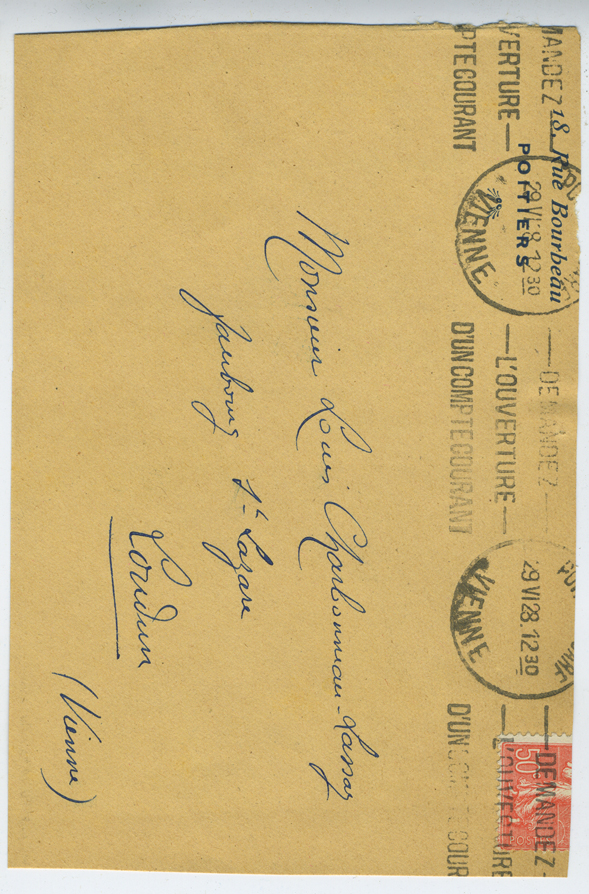 18, Rue Bourbeau
POITIERS
MANDEZ
VERTURE
PTE COURANT
29 VI 28. 12 30
VIENNE
— DEMANDEZ —
— L'OUVERTURE —
D'UN COMPTE COURANT
GARE
29 VI 28. 12 30
VIENNE
— DEMANDEZ —
— L'OUVERTURE
D'UN COMPTE COUR
50
Monsieur Louis Charbonneau-Lassay
faubourg St Lazare
Loudun
(Vienne)